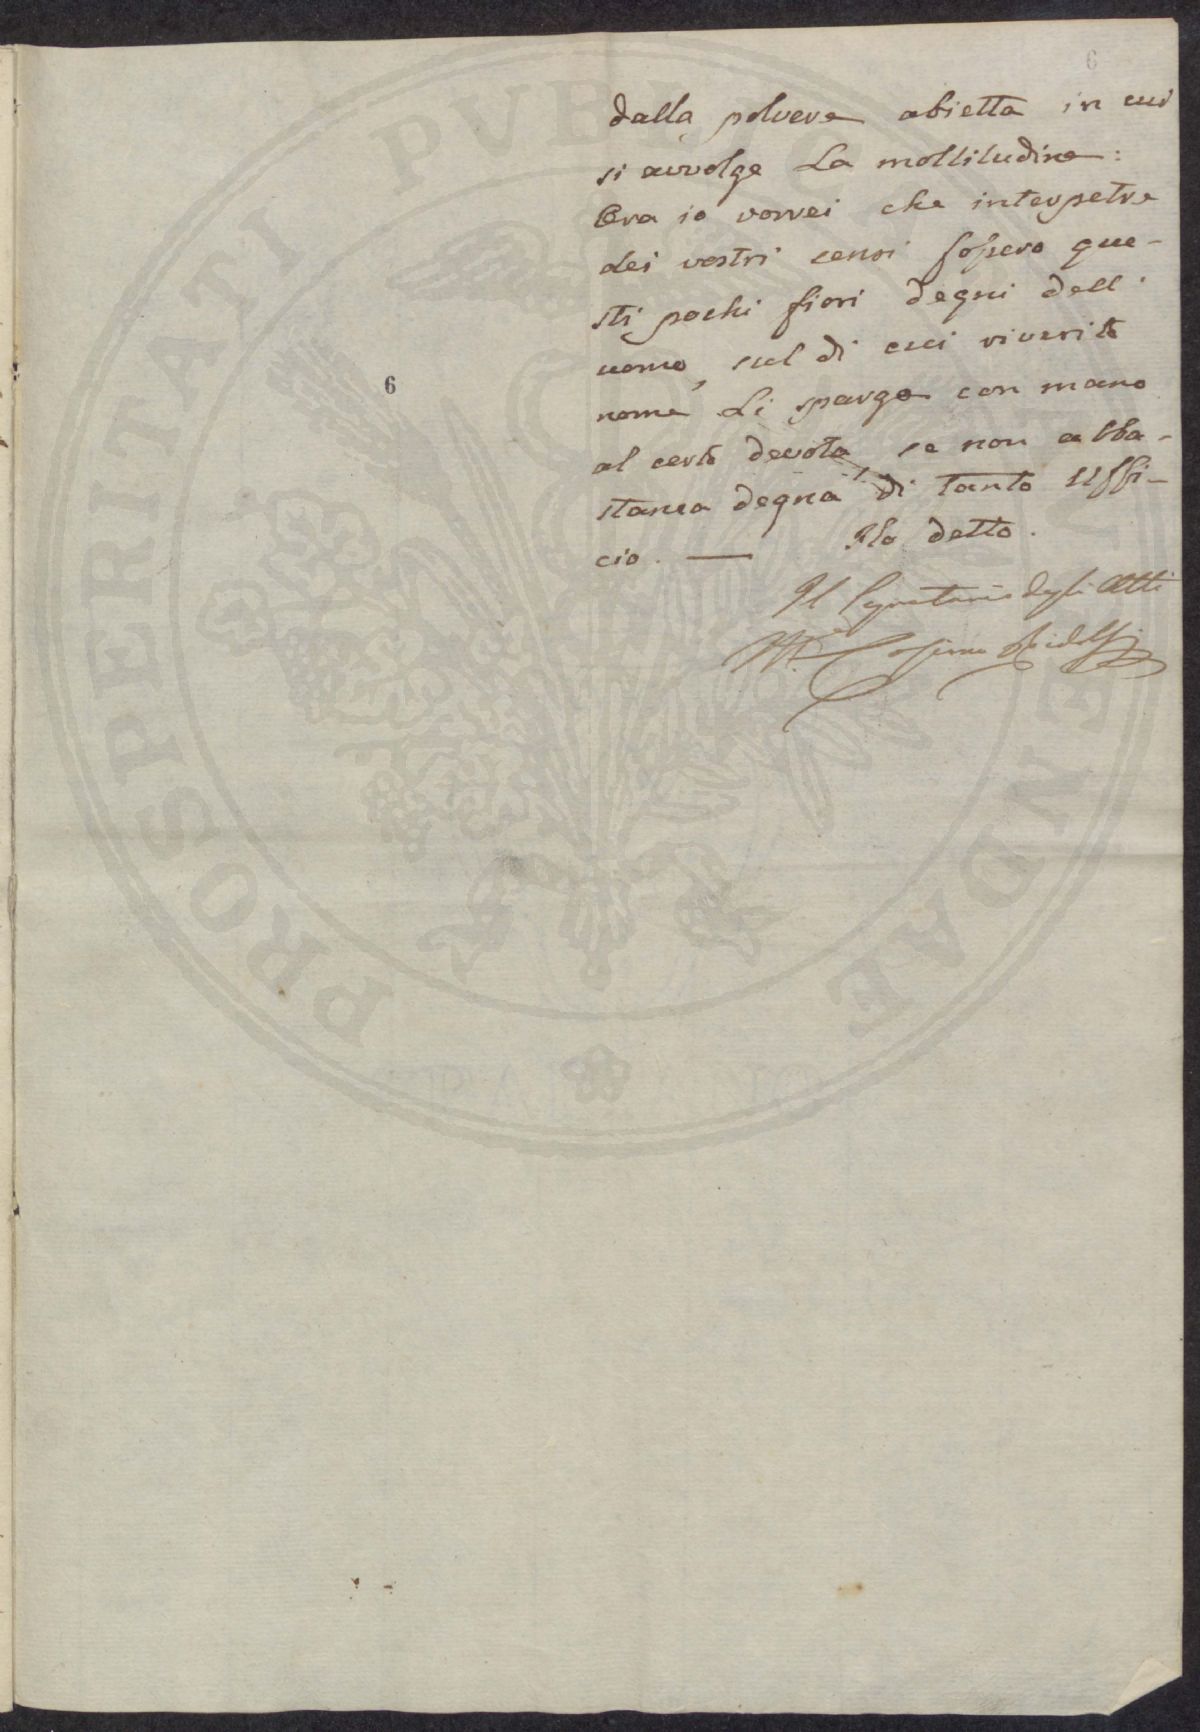 6
dalla polvere abietta in cui
si avvolge La moltitudine:
Ora io vorrei che interpetre
dei vostri sensi fossero que-
sti pochi fiori degni dell'
uomo, sul di cui riverito
nome Li spargo con mano
al certo devota, se non abba-
stanza degna di tanto Uffi-
cio. — Ho detto.
Il Segretario degli Atti
M. Cosimo Ridolfi
6
PROSPERITATI PVBLICAE AVGENDAE